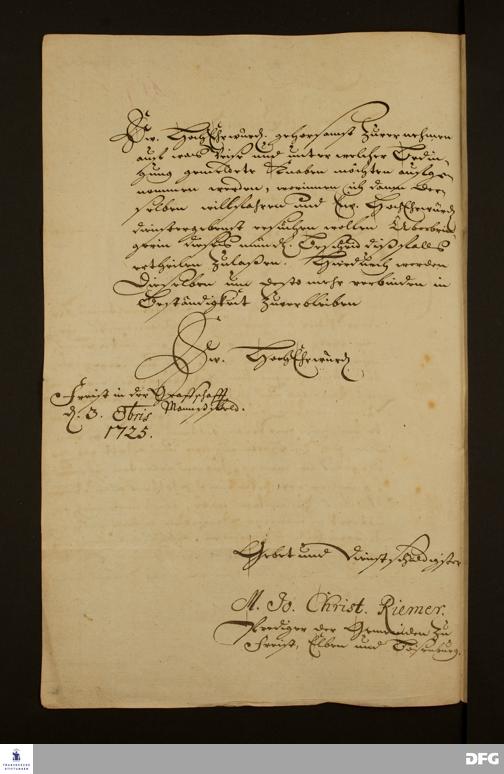 Ew. HochEhrwürd. gehorsamst zu vernehmen
auf was Weise und unter welcher Bedin-
gung gemeldete Knaben möchten aufge-
nommen werden, worinnen ich dann Den-
selben willfahren und Ew. HochEhrwürd.
dienstergebenst ersuchen wollen Überbrin-
gern dieses mündl. Bescheid dißfalls
ertheilen zulaßen. Hierdurch werden
Dieselben um desto mehr verbinden in
Beständigkeit zuverbleiben
Ew. HochEhrwürd.
Freist in der Graffschafft
Mannsfeld.
d. 3. Xbris
1725.
Gebet und dienstschuldigster
M. Jo. Christ. Riemer.
Prediger der Gemeinden zu
Freist, Elben und
FRANCKESCHE
STIFTUNGEN
DFG